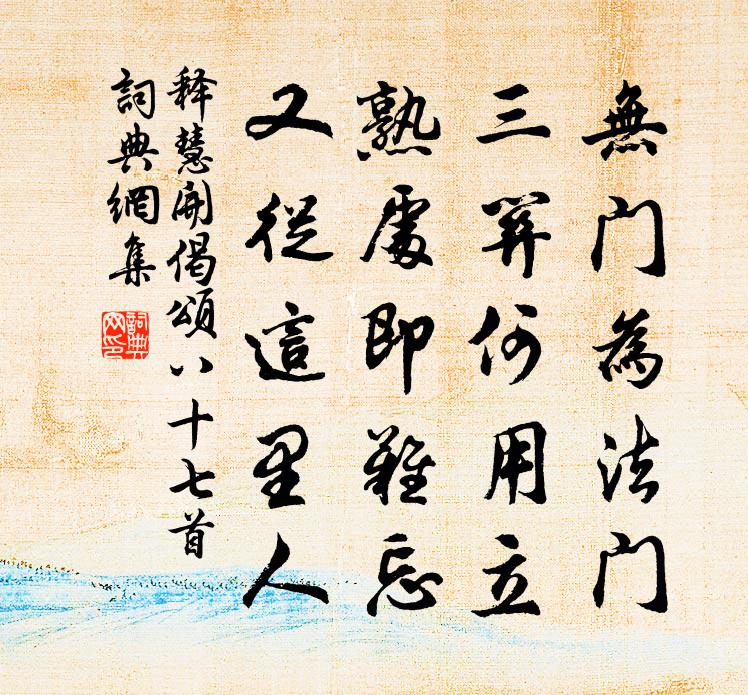 無門為法門
三關何用立
熟處即難忘
又從這里人
释慧開偈頌八十七首
詞典網集
詞典
网印